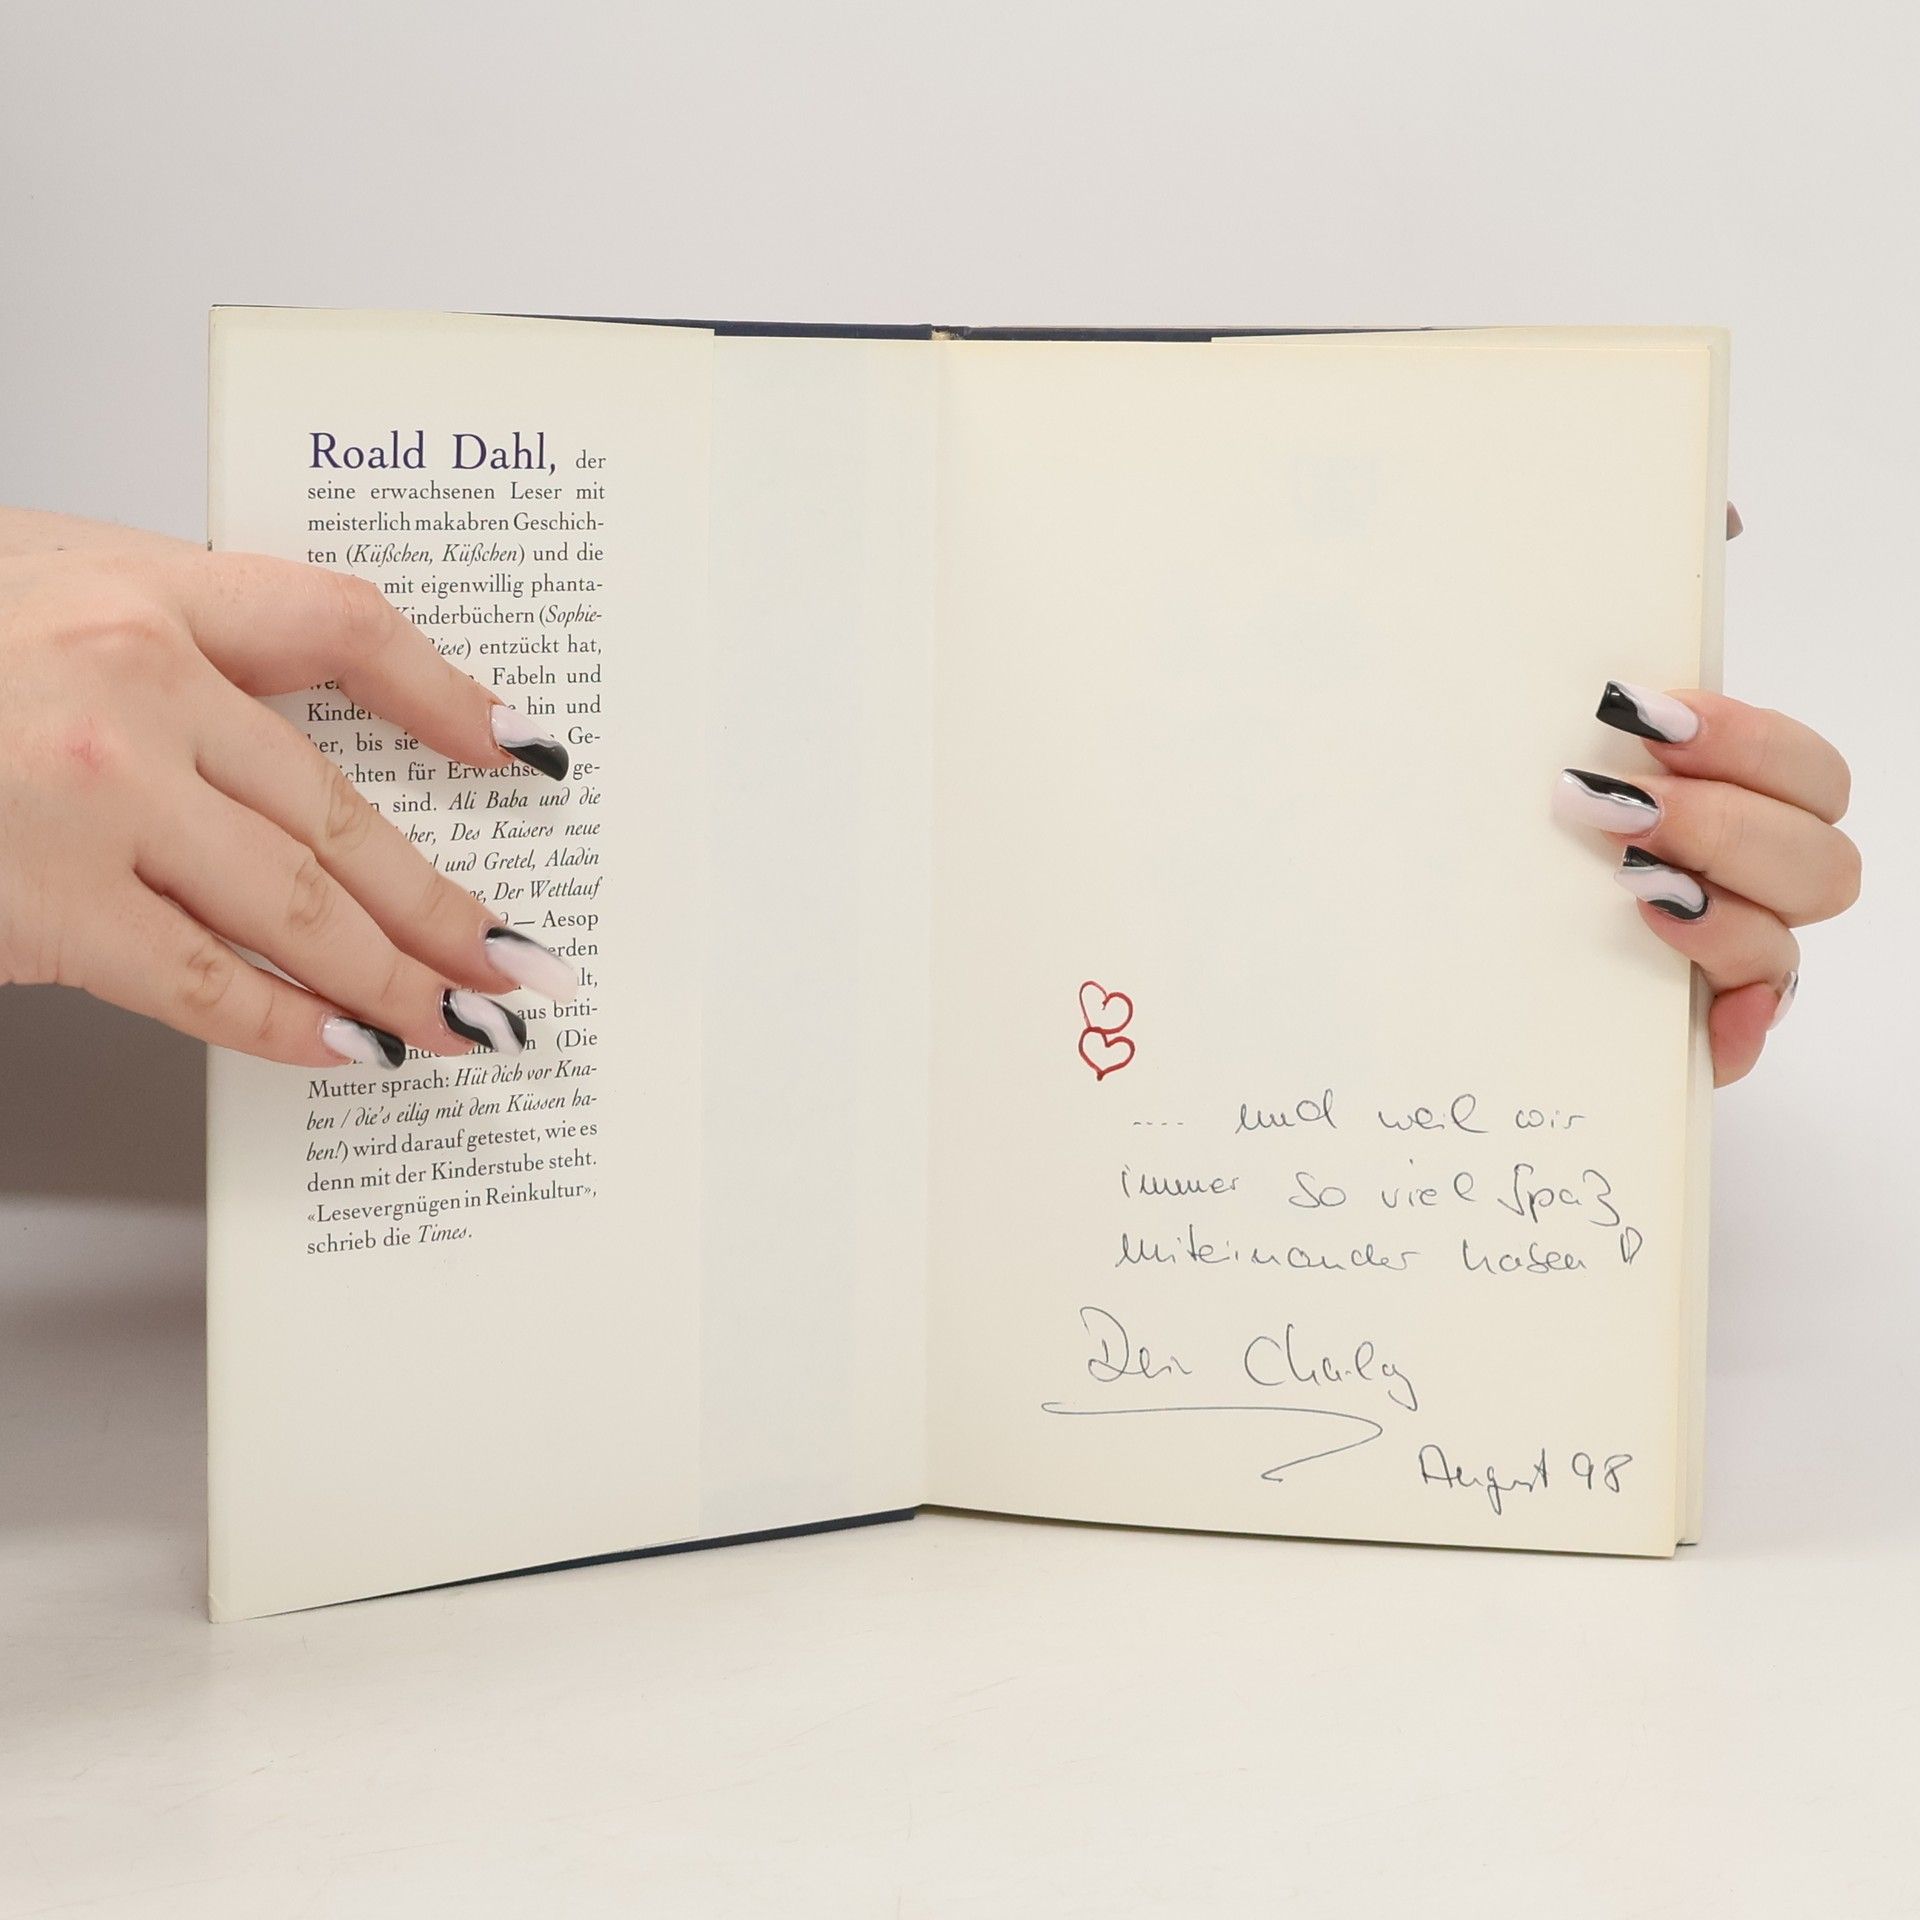 Roald Dahl, der
seine erwachsenen Leser mit
meisterlich makabren Geschich-
ten (Küßchen, Küßchen) und die
mit eigenwillig phanta-
Kinderbüchern (Sophie-
Riese) entzückt hat,
Fabeln und
Kinder
hin und
her, bis sie Ge-
ichten für Erwachse ge-
sind. Ali Baba und die
ber, Des Kaisers neue
und Gretel, Aladin
Der Wettlauf
— Aesop
erden
lt,
aus briti-
n (Die
Mutter sprach: Hüt dich vor Kna-
ben / die's eilig mit dem Küssen ha-
ben!) wird darauf getestet, wie es
denn mit der Kinderstube steht.
«Lesevergnügen in Reinkultur»,
schrieb die Times.
.... und weil wir
immer so viel Spaß
miteinander haben
Dein Charly
August 98